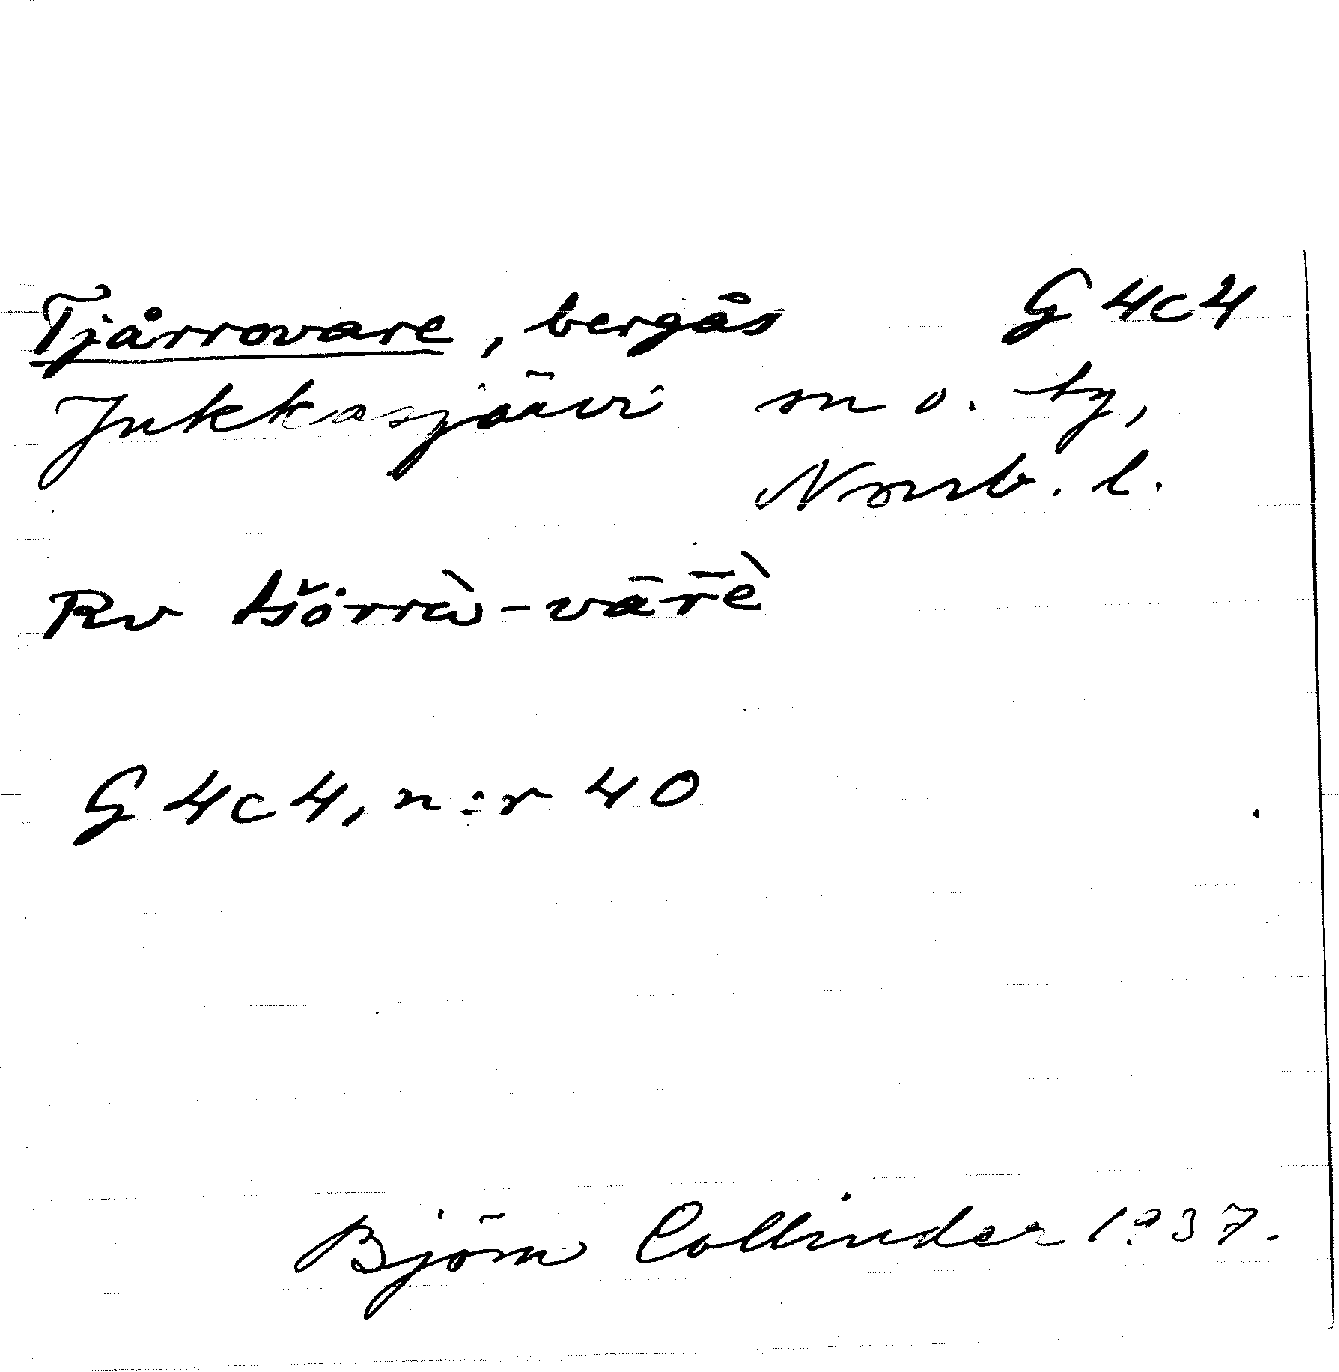 Tjårrovare, bergås G4c4
Jukkasjärvi sn o. tg,
Norrb. l.
Rv tšȯrrà-vārḕ
G4c4, n:r 40
Björn Collinder 1937.